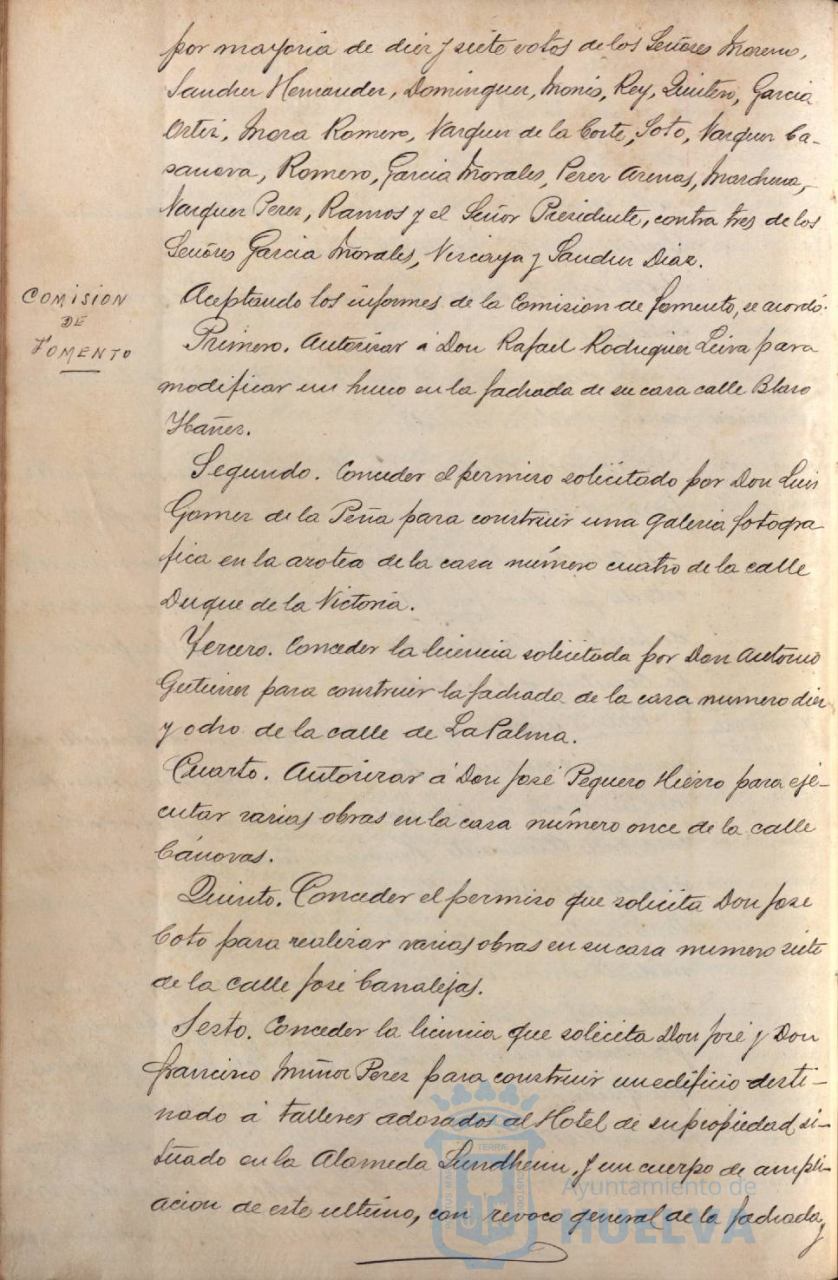 por mayoria de diez y siete votos de los Señores Moreno,
Sanchez Hernandez, Dominguez, Monis, Rey, Quintero, Garcia
Ortiz, Mora Romero, Vazquez de la Corte, Soto, Vazquez Ca-
sanova, Romero, Garcia Morales, Perez Arenas, Marchena,
Vazquez Perez, Ramos y el Señor Presidente, contra tres de los
Señores Garcia Morales, Vizcaya y Sanchez Diaz.
COMISION
DE
FOMENTO
Aceptando los informes de la Comision de Fomento, se acordó:
Primero. Autorizar á Don Rafael Rodriguez Leiva para
modificar un hueco en la fachada de su casa calle Blasco
Ybañez.
Segundo. Conceder el permiso solicitado por Don Luis
Gomez de la Peña para construir una galeria fotogra
fica en la azotea de la casa número cuatro de la calle
Duque de la Victoria.
Tercero. Conceder la licencia solicitada por Don Antonio
Gutierrez para construir la fachada de la casa numero diez
y ocho de la calle de La Palma.
Cuarto. Autorizar á Don José Peguero Hierro para eje-
cutar varias obras en la casa número once de la calle
Cánovas.
Quinto. Conceder el permiso que solicita Don Jose
Coto para realizar varias obras en su casa numero siete
de la calle José Canalejas.
Sexto. Conceder la licencia que solicita Don José y Don
Francisco Muñoz Perez para construir un edificio desti-
nado á talleres adosados al Hotel de su propiedad si-
tuado en la Alameda Sundheim, y un cuerpo de ampli-
acion de este ultimo, con revoco general de la fachada y
Ayuntamiento de
HUELVA